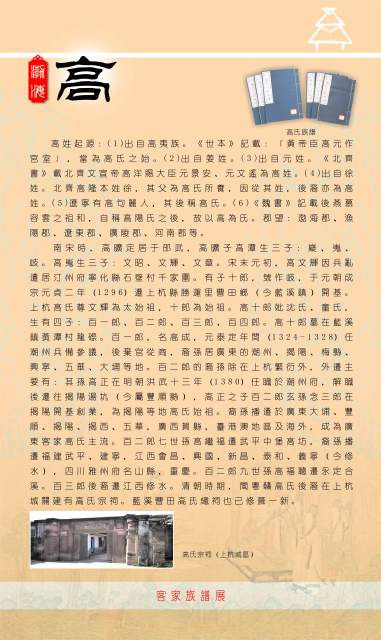 渤海
高
高氏族譜
高姓起源：(1)出自高夷族。《世本》記載：「黃帝臣高元作
宮室」，當為高氏之始。(2)出自姜姓。(3)出自元姓。《北齊
書》載北齊文宣帝高洋賜大臣元景安、元文遙為高姓。(4)出自徐
姓。北齊高隆本姓徐，其父為高氏所養，因從其姓，後裔亦為高
姓。(5)遼寧有高句麗人，其後稱高氏。(6)《魏書》記載後燕慕
容雲之祖和，自稱高陽氏之後，故以高為氏。郡望：渤海郡、漁
陽郡、遼東郡、廣陵郡、河南郡等。
南宋時，高曠定居于邵武，高曠子高潭生三子：嶷、嵬、
岐。高嵬生三子：文昭、文輝、文章。宋末元初，高文輝因兵亂
遷居汀州府寧化縣石壁村千家圍。有子十郎，號作岐，于元朝成
宗元貞二年 (1296) 遷上杭縣勝運里豐田鄉（今藍溪鎮）開基。
上杭高氏尊文輝為太始祖，十郎為始祖。高十郎妣沈氏、童氏，
生有四子：百一郎、百二郎、百三郎，百四郎。高十郎墓在藍溪
鎮黃潭村龍磜。百一郎，名高成，元泰定年間 (1324-1328) 任
潮州兵備參議，後棄官從商，裔孫居廣東的潮州、揭陽、梅縣、
興寧、五華、大埔等地。百二郎的裔孫除在上杭繁衍外，外遷主
要有：其孫高正在明朝洪武十三年 (1380) 任職於潮州府，解職
後遷往揭陽湯坑（今屬豐順縣），高正之子百二郎玄孫念三郎在
揭陽開基創業，為揭陽等地高氏始祖。裔孫播遷於廣東大埔、豐
順、揭陽、揭西、五華，廣西賀縣，臺港澳地區及海外，成為廣
東客家高氏主流。百二郎七世孫高繼福遷武平中堡高坊，裔孫播
遷福建武平、建寧，江西會昌，興國、新昌、泰和、義寧（今修
水），四川雅州府名山縣，重慶。百二郎九世孫高福聰遷永定合
溪。百三郎後裔遷江西修水。清朝時期，閩粵贛高氏後裔在上杭
城關建有高氏宗祠。藍溪豐田高氏總祠也已修葺一新。
高氏宗祠（上杭城區）
客家族譜展